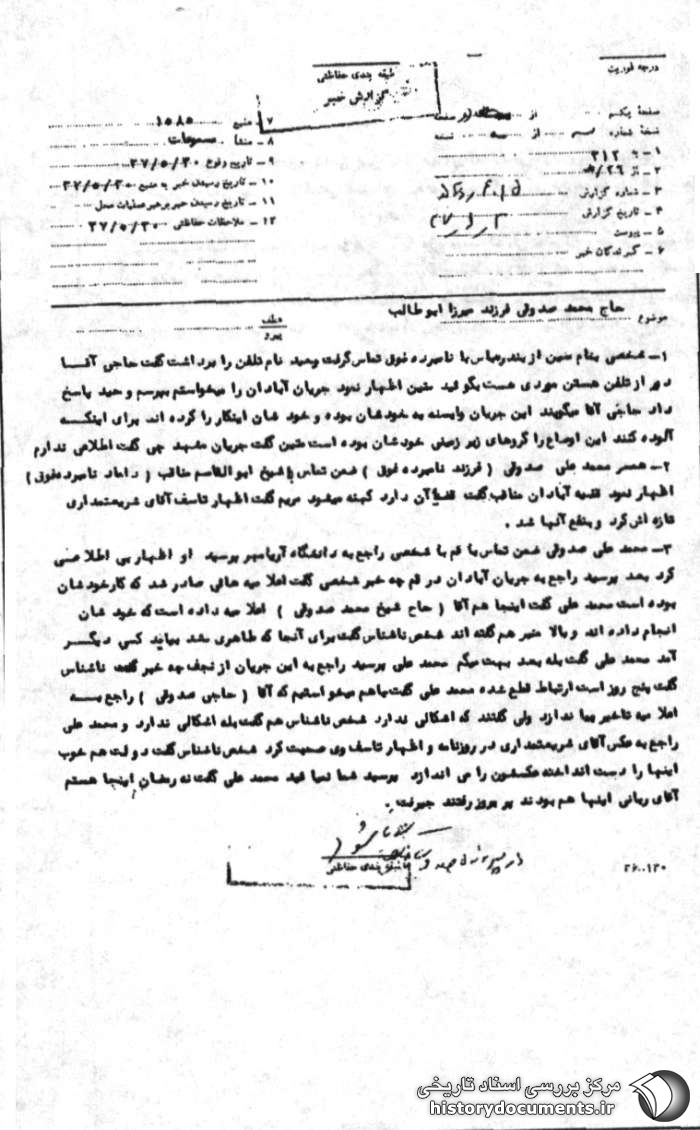 درجه فوریت
طبقه بندی حفاظتی
گزارش خبر
صفحه یکم از صفحه
نسخه شماره از سه نسخه
۱ – به ۳۱۲
۲ – از
۳ – شماره گزارش
۴ – تاریخ گزارش
۵ – پیوست
۶ – گیرندگان خبر
۷ – منبع ۱۰۸۵
۸ – منشأ مسموعات
۹ – تاریخ وقوع ۳۷/۵/۳۰
۱۰ – تاریخ رسیدن خبر به منبع ۳۷/۵/۳۰
۱۱ – تاریخ رسیدن خبر برهبر عملیات محل
۱۲ – ملاحظات حفاظتی ۳۷/۵/۳۰
موضوع حاج محمد صدوقی فرزند میرزا ابوطالب
عطف
پیرو
۱– شخصی بنام متین از بندرعباس با نامبرده فوق تماس گرفت وحید نام تلفن را برداشت گفت حاجی آقا
دور از تلفن هستن موردی هست بگوئید متین اظهار نمود جریان آبادان را میخواستم بپرسم وحید پاسخ
داد حاجی آقا میگویند این جریان وابسته به خودشان بوده و خود شان اینکار را کرده اند برای اینکه
آلوده کنند این اوضاع را گروهای زیر زمینی خودشان بوده است متین گفت جریان مشهد چی گفت اطلاعی ندارم
۲– همسر محمد علی صدوقی ( فرزند نامبرده فوق ) ضمن تماس با شیخ ابوالقاسم مناقب ( داماد نامبرده فوق )
اظهار نمود قضیه آبادان مناقب گفت قضایا آن دارد کهنه میشود مریم گفت اظهار تاسف آقای شریعتمداری
تازه اش کرد و بنفع آنها شد .
۳– محمد علی صدوقی ضمن تماس با قم با شخصی راجع به دانشگاه آریامهر پرسید او اظهار بی اطلاعی
کرد بعد پرسید راجع به جریان آبادان در قم چه خبر شخصی گفت اعلامیه هائی صادر شد که کار خودشان
بوده است محمد علی گفت اینجا هم آقا ( حاج شیخ محمد صدوقی ) اعلامیه داده است که خود شان
انجام داده اند و بالا منبر هم گفته اند شخص ناشناس گفت برای آنجا که ظاهری نشد بیاید کسی دیگر
آمد محمد علی گفت بله بعد بهت میگم محمد علی پرسید راجع به این جریان از نجف چه خبر گفت ناشناس
گفت پنج روز است ارتباط قطع شده محمد علی گفت ماهم میخواستیم که آقا ( حاجی صدوقی ) راجع به
اعلامیه تاخیر بیاندازد ولی گفتند که اشکالی ندارد شخص ناشناس هم گفت بله اشکالی ندارد و محمد علی
راجع به عکس آقای شریعتمداری در روزنامه و اظهار تاسف وی صحبت کرد شخص ناشناس گفت دولت هم خوب
اینها را دست انداخته عکسشون را می اندازد پرسید شما نمیائید محمد علی گفت نه رمضان اینجا هستم
آقای ربانی اینها هم بودند پریروز رفتند جیرفت .
طبقه بندی حفاظتی
۳۶۰۰۱۳۰
مرکز بررسی اسناد تاریخی
historydocuments.ir